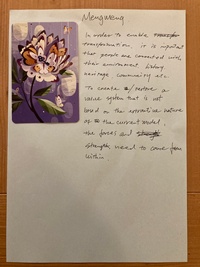 Mengwang
In order to enable
transformation, it is important
that people are connected with
their environment, history,
heritage, community etc.
To create / restore a
value system that is not
based on the extractive nature
of the current model,
the forces and
strengths need to come from
within